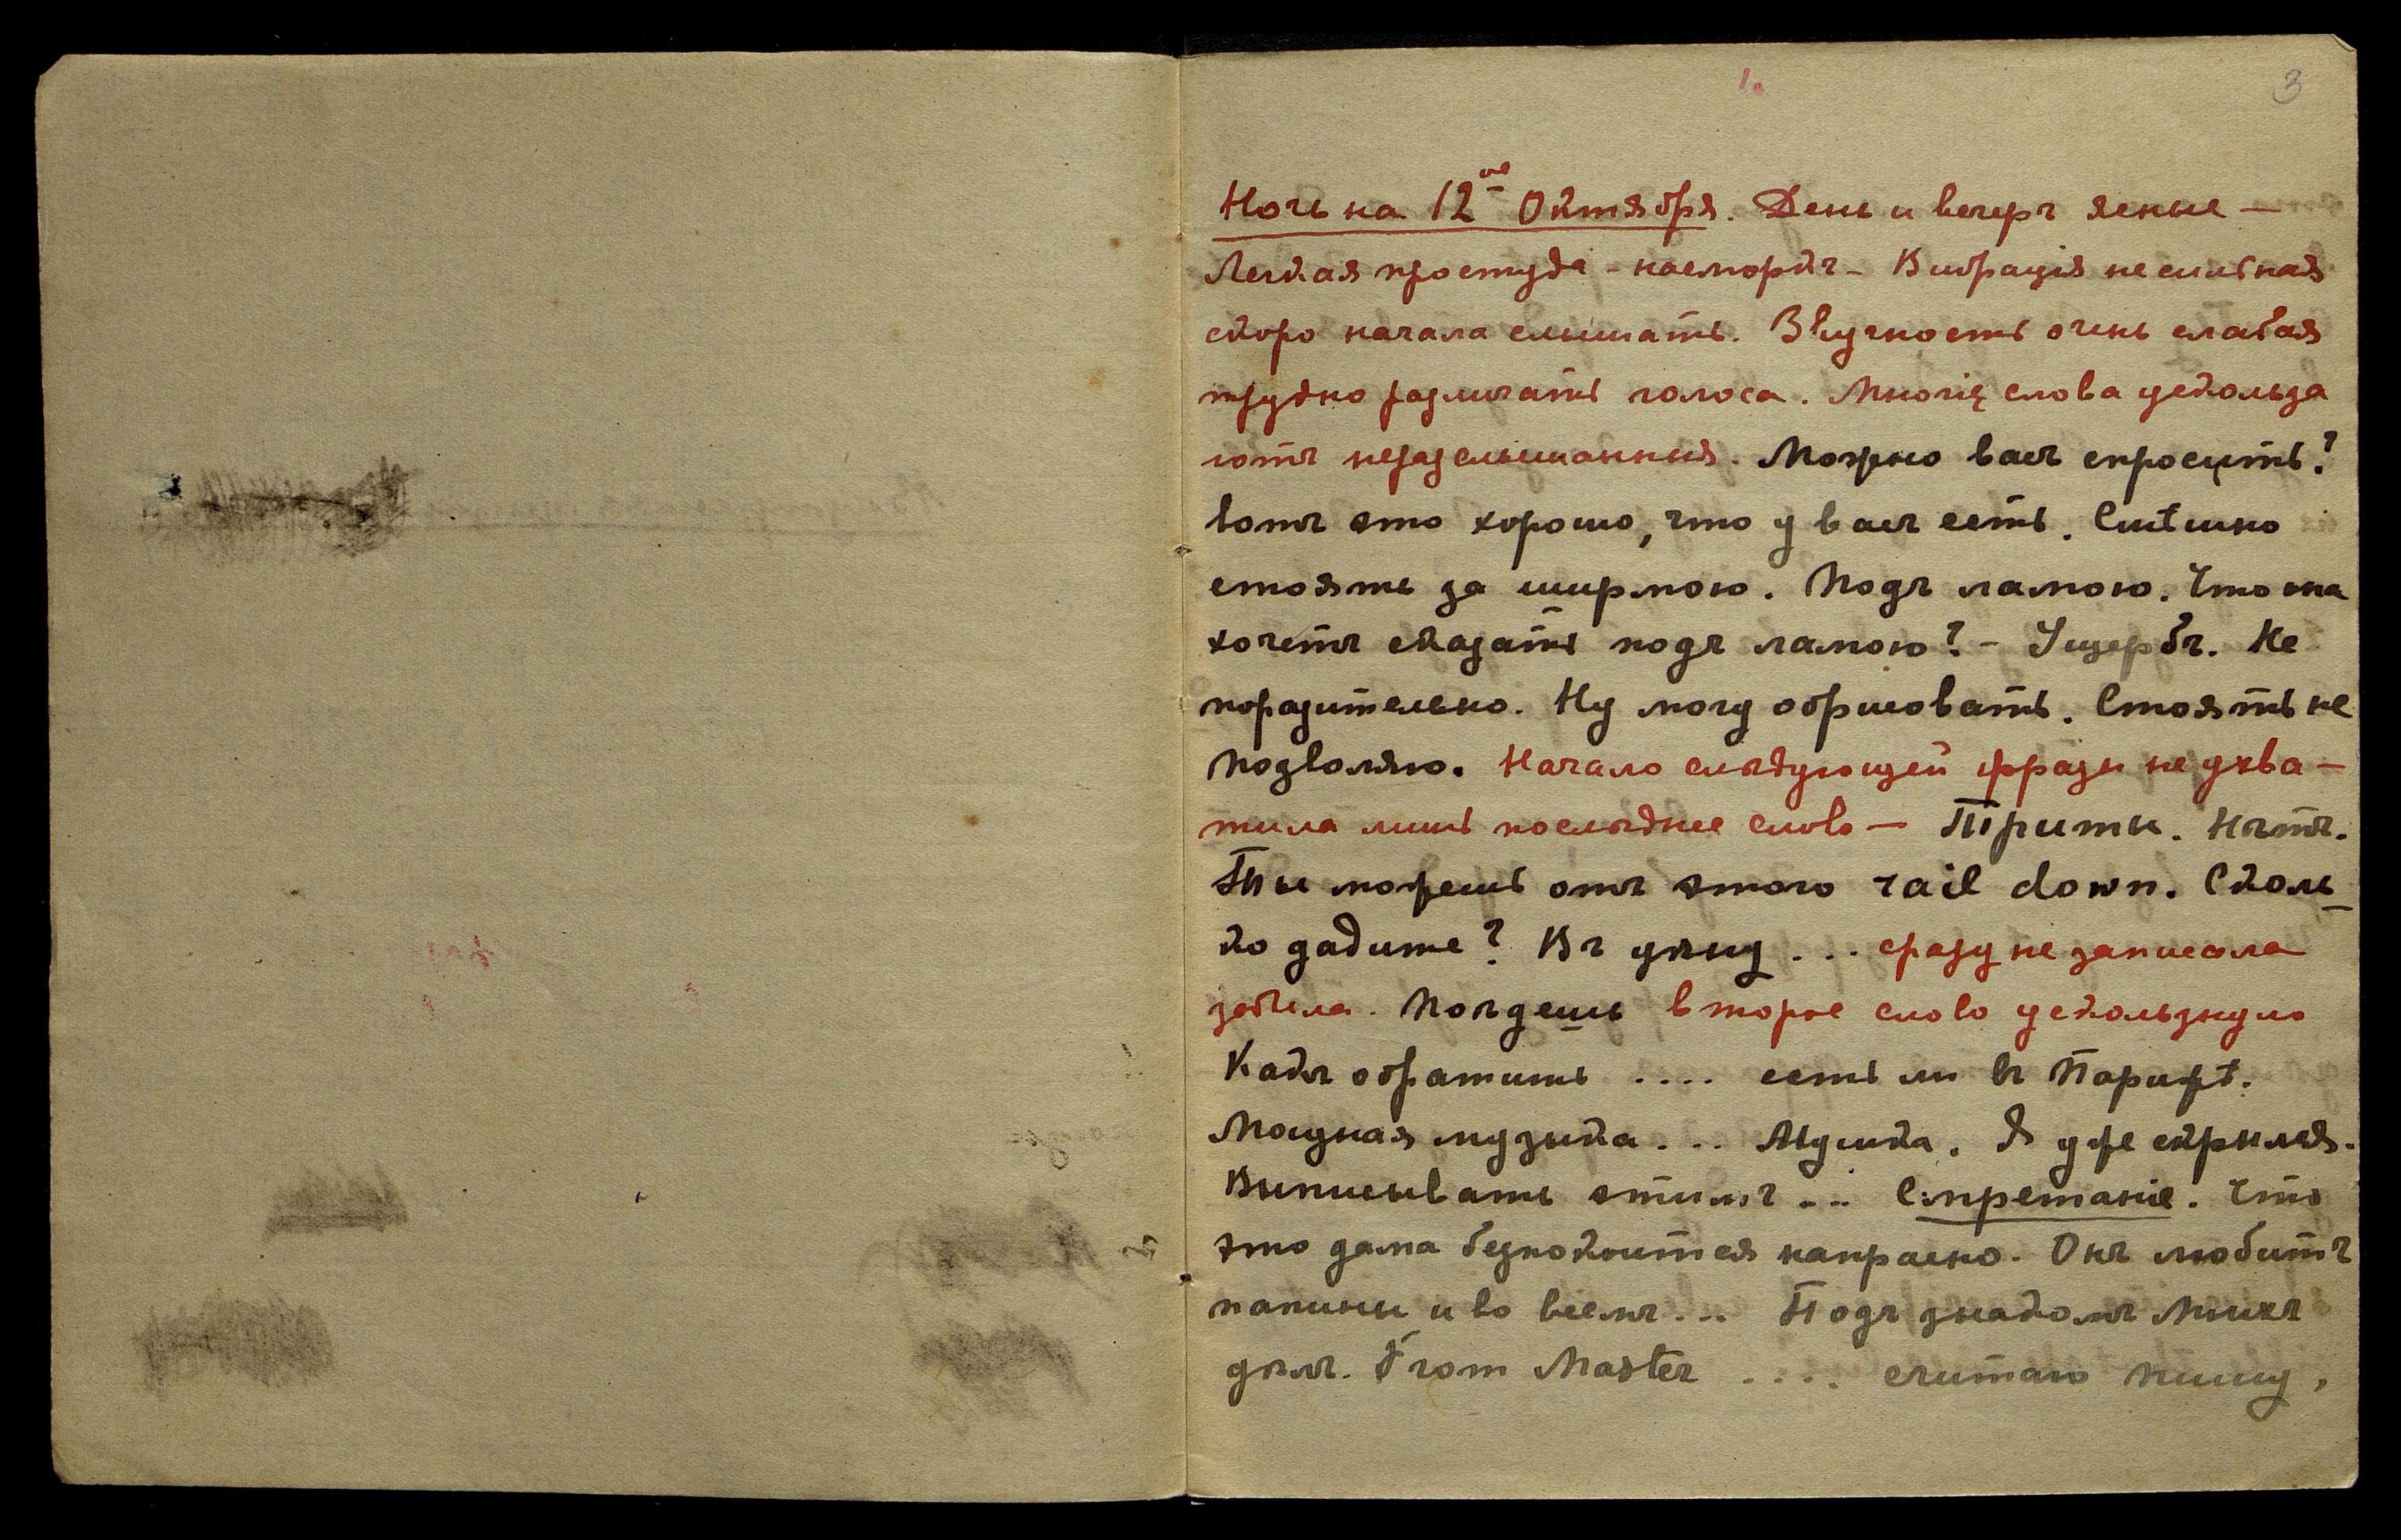 1.
3
Ночь на 12ое Октября. День и вечеръ ясные —
Легкая простуда - насморкъ - Вибрація не сильная
скоро начала слышать. Звучность очень слабая
трудно различать голоса. Многіе слова ускольза
ютъ незаслышанныя. Можно васъ спросить?
Вотъ это хорошо, что у васъ есть. Смѣшно
стоять за ширмою. Подъ ламою. Что она
хочетъ сказать подъ ламою? - Ущербъ. Не
поразительно. Ну могу обрисовать. Стоять не
позволяю. Начало слѣдующей фразы не ухва-
тила лишь послѣднее слово — Триты. Нѣтъ.
Ты можешь отъ этого rail down. Сколь
ко дадите? Въ ... сразу не записала
забыла. второе слово ускользнуло
Какъ обратить .... есть ли въ Парижѣ.
Мощная музыка ... Мушка. Я уже скрылся.
Выписывать этимъ ... Спретаніе. Что
это дама безпокоится напрасно. Онъ любитъ
папины и во всемъ ... Подъ знакомъ Михъ
домъ. From Master .... считаю пишу,